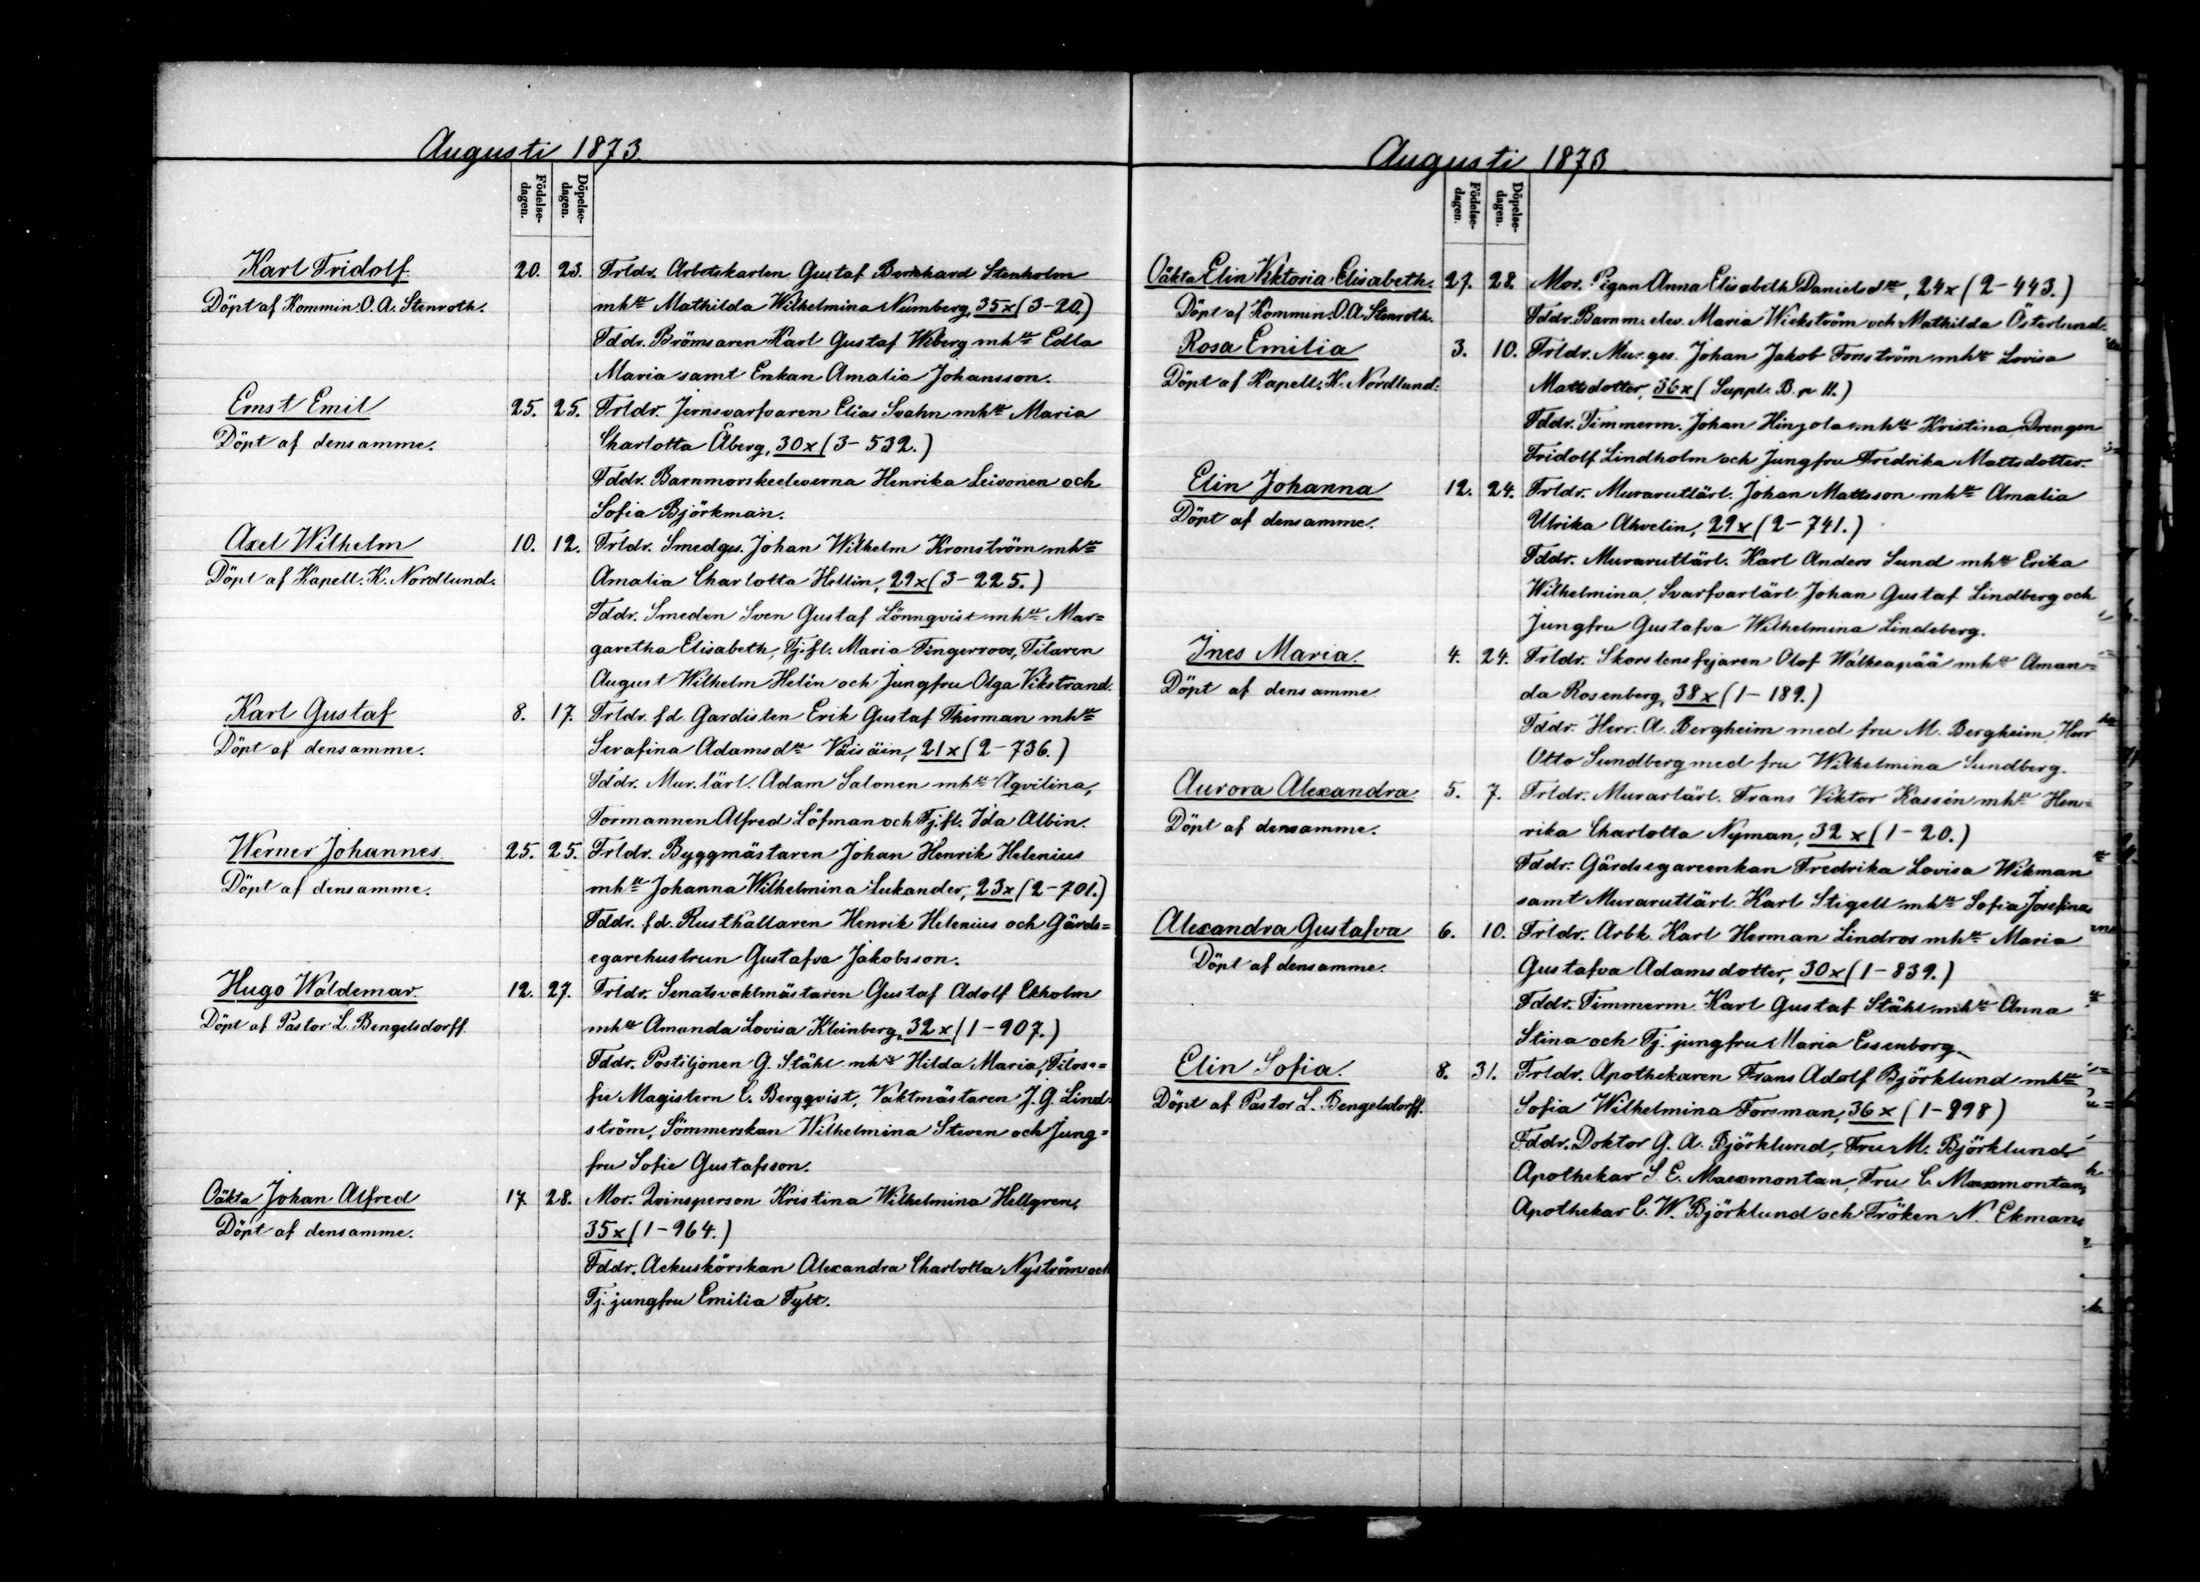 Augusti 1873.
Födelse-
dagen.
Döpelse-
dagen.
Karl Fridolf
Döpt af Kommin. O. A. Stenroth.
20. 23. Frldr. Arbetskarlen Gustaf Bernhard Stenholm
mhu Mathilda Wilhelmina Nurnberg, 35x (3-20.)
Fddr. Brömsaren Karl Gustaf Wiberg mhu Edla
Maria samt Enkan Amalia Johansson.
Ernst Emil
Döpt af densamme.
25. 25. Frldr. Jernsvarfvaren Elias Svahn mhu Maria
Charlotta Åberg, 30x (3-532.)
Fddr. Barnmorskeeleverna Henrika Leivonen och
Sofia Björkman.
Axel Wilhelm
Döpt af Kapell. K. Nordlund.
10. 12. Frldr. Smedges. Johan Wilhelm Kronström mhu
Amalia Charlotta Hellin, 29x (3-225.)
Fddr. Smeden Sven Gustaf Lönnqvist mhu Mar=
garetha Elisabeth, Tj.fl. Maria Fingerroos, Filaren
August Wilhelm Helén och Jungfru Olga Vikstrand.
Karl Gustaf
Döpt af densamme.
8. 17. Frldr. fd. Gardisten Erik Gustaf Therman mhu
Serafina Adamsdtr Väisäin, 21x (2-736.)
Fddr. Mur.lärl. Adam Salonen mhu Aqvilina,
Formannen Alfred Löfman och Tj.fl. Ida Albin.
Werner Johannes
Döpt af densamme.
25. 25. Frldr. Byggmästaren Johan Henrik Helenius
mhu Johanna Wilhelmina Lukander, 23x (2-701.)
Fddr. fd. Rusthållaren Henrik Helenius och Gårds=
egarehustrun Gustafva Jakobsson.
Hugo Waldemar
Döpt af Pastor L. Bengelsdorff.
12. 27. Frldr. Senatsvaktmästaren Gustaf Adolf Ekholm
mhu Amanda Lovisa Kleinberg, 32x (1-907.)
Fddr. Postiljonen G. Ståhl mhu Hilda Maria, Filoso=
fie Magistern C. Bergqvist, Vaktmästaren J. G. Lind=
ström, Sömmerskan Wilhelmina Steven och Jung=
fru Sofie Gustafsson.
Oäkta Johan Alfred
Döpt af densamme.
17. 28. Mor. Qvinsperson Kristina Wilhelmina Hellgren,
35x (1-964.)
Fddr. Ackuskörskan Alexandra Charlotta Nyström och
Tj. jungfru Emilia Fylt.
Augusti 1873
Födelse-
dagen.
Döpelse-
dagen.
Oäkta Elin Viktoria Elisabeth.
Döpt af Kommin. O. A. Stenroth.
27. 28. Mor. Pigan Anna Elisabeth Danielsdtr, 24x (2-443.)
Fddr. Barnm. elev. Maria Wickström och Mathilda Österlund.
Rosa Emilia
Döpt af Kapell. K. Nordlund.
3. 10. Frldr. Mur.ges. Johan Jakob Forsström mhu Lovisa
Mattsdotter, 36x (Suppl. B. p 11.)
Fddr. Timmerm. Johan Hinzola mhu Kristina, Drengen
Fridolf Lindholm och Jungfru Fredrika Mattsdotter.
Elin Johanna
Döpt af densamme.
12. 24. Frldr. Murarutlärl. Johan Mattsson mhu Amalia
Ulrika Ahvelin, 29x (2-741.)
Fddr. Murarutlärl. Karl Anders Sund mhu Erika
Wilhelmina, Svarfvarlärl Johan Gustaf Lindberg och
Jungfru Gustafva Wilhelmina Lindeberg.
Ines Maria.
Döpt af densamme
4. 24. Frldr. Skorstensfejaren Olof Walkeapää mhu Aman=
da Rosenberg, 38x (1-189.)
Fddr. Herr A. Bergheim med fru M. Bergheim, Herr
Otto Sundberg med fru Wilhelmina Sundberg.
Aurora Alexandra
Döpt af densamme.
5. 7. Frldr. Murarlärl. Frans Viktor Kassén mhu Hen=
rika Charlotta Nyman, 32x (1-20.)
Fddr. Gårdsegareenkan Fredrika Lovisa Wikman
samt Murarutlärl. Karl Stigell mhu Sofia Josefina
Alexandra Gustafva
Döpt af densamme.
6. 10. Frldr. Arbk. Karl Herman Lindros mhu Maria
Gustafva Adamsdotter, 30x (1-839.)
Fddr. Timmerm. Karl Gustaf Ståhl mhu Anna
Stina och Tj. jungfru Maria Essenborg
Elin Sofia.
Döpt af Pastor L. Bengelsdorff.
8. 31. Frldr. Apothekaren Frans Adolf Björklund mhu
Sofia Wilhelmina Forsman, 36x (1-998)
Fddr. Doktor G. A. Björklund, Fru M. Björklund
Apothekar S. E. Maexmontan, Fru C. Maexmontan,
Apothekar C. W. Björklund och Fröken N. Ekman